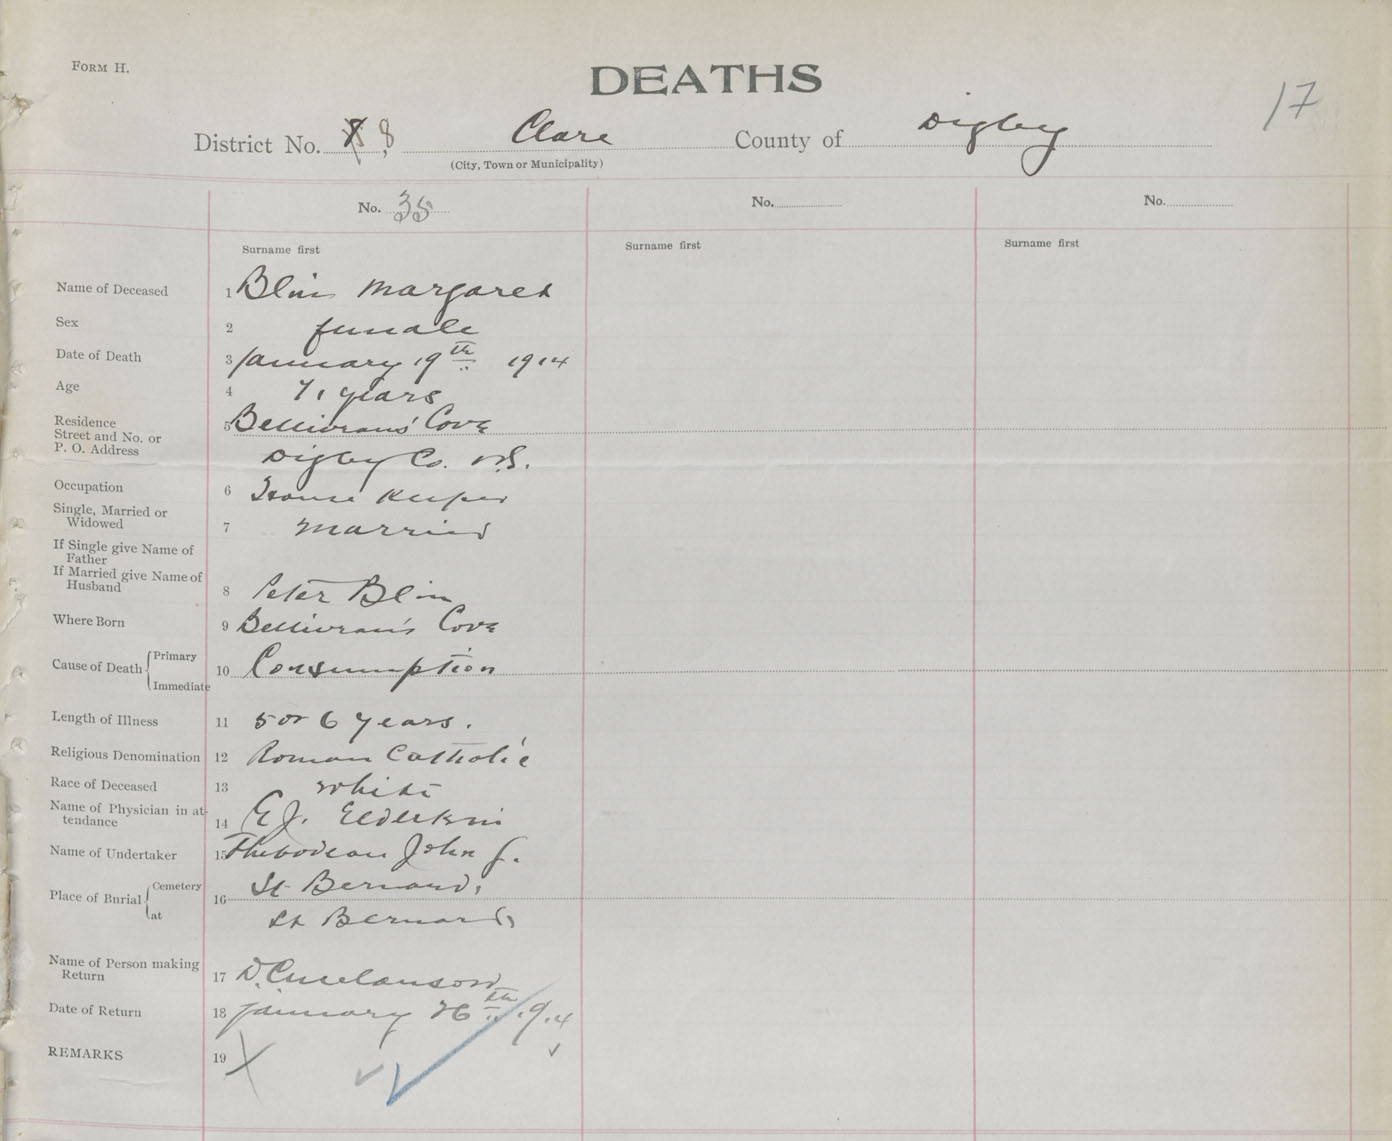 FORM H.
DEATHS
17
District No. 8 Clare County of Digby
(City, Town or Municipality)
No. 35 No. No.
Surname first Surname first Surname first
Name of Deceased 1 Blin Margaret
Sex 2 female
Date of Death 3 January 19th 1914
Age 4 71 years
Residence
Street and No. or
P. O. Address
5 Belliveau's Cove
Digby Co. N.S.
Occupation 6 House Keeper
Single, Married or
Widowed 7 married
If Single give Name of
Father
If Married give Name of
Husband 8 Peter Blin
Where Born 9 Belliveau's Cove
Cause of Death Primary
Immediate
10 Consumption
Length of Illness 11 5 or 6 years.
Religious Denomination 12 Roman Catholic
Race of Deceased 13 white
Name of Physician in at-
tendance 14 E.J. Elderkin
Name of Undertaker 15 Thibodeau John J.
Place of Burial Cemetery
at
16 St Bernard,
St Bernard,
Name of Person making
Return 17 D. C. Melanson
Date of Return 18 January 26th 1914
REMARKS 19